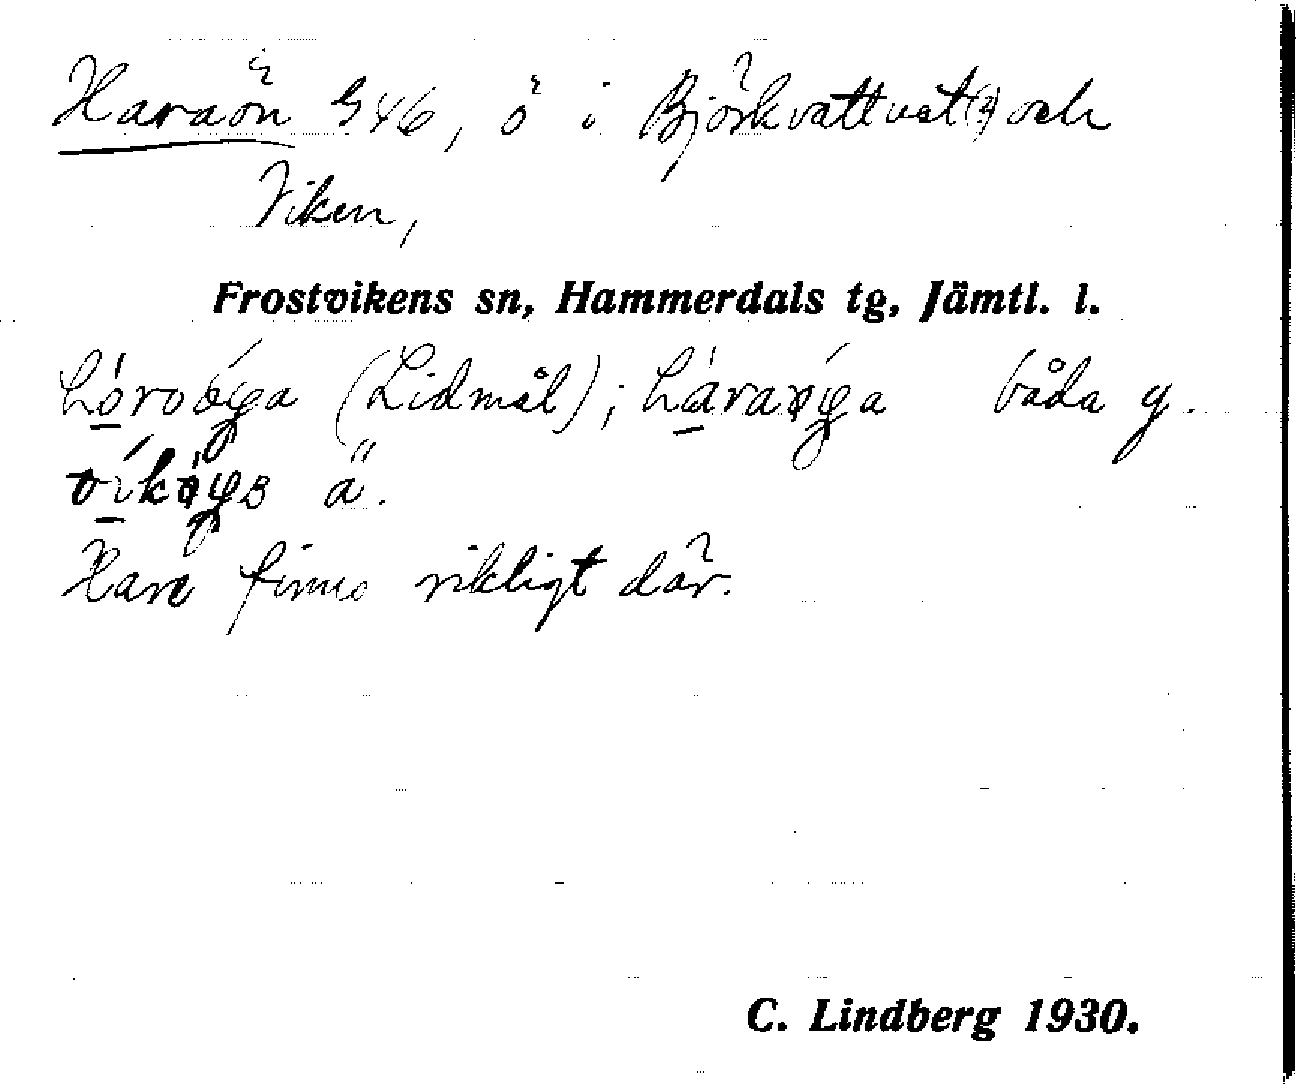 Haraön 546, ö i Björkvattnet(2) och
Viken,
Frostvikens sn, Hammerdals tg, Jämtl. l.
(Lidmål); båda y.
ä.
Hare finns rikligt där.
C. Lindberg 1930.